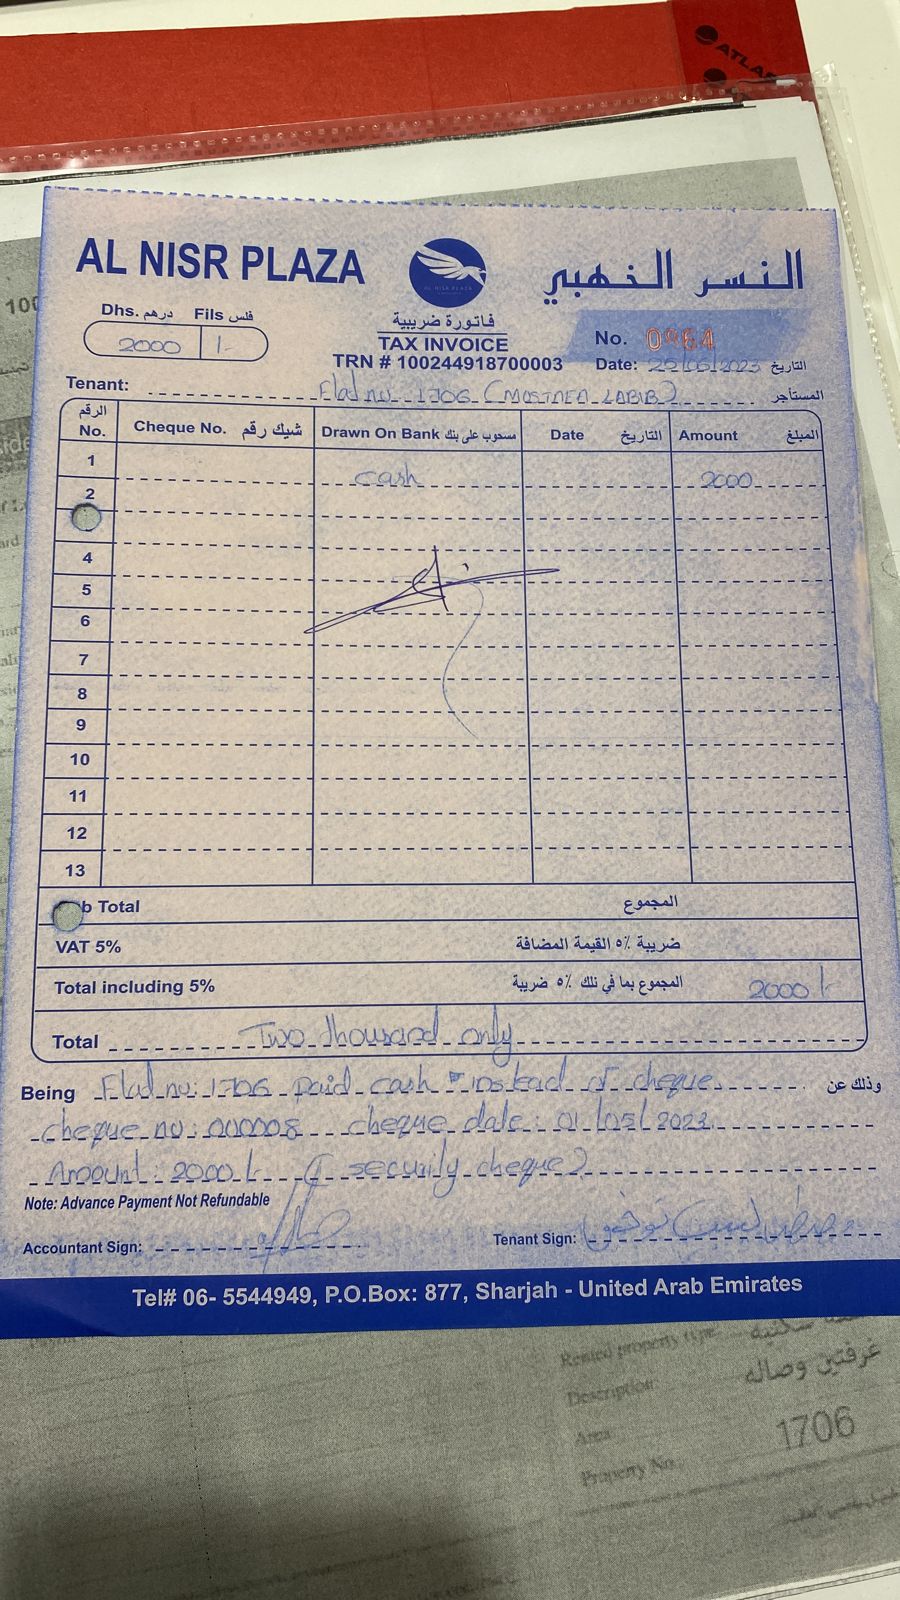 ATLAS
100
AL NISR PLAZA
AL NISR PLAZA
النسر الذهبي
Dhs. درهم Fils فلس
2000 /-
فاتورة ضريبية
TAX INVOICE
TRN # 100244918700003
No. 0964
Date: 29/05/2023 التاريخ
Tenant: Flat no. 1706 (MOSTAFA LABIB) المستأجر
الرقم No. Cheque No. شيك رقم Drawn On Bank مسحوب على بنك Date التاريخ Amount المبلغ
1 cash 2000
2
4
5
6
7
8
9
10
11
12
13
b Total المجموع
VAT 5% ضريبة ٥٪ القيمة المضافة
Total including 5% المجموع بما في ذلك ٥٪ ضريبة 2000 /-
Total Two thousand only
Being Flat no: 1706 paid cash instead of cheque وذلك عن
cheque no: 000008 cheque date: 01/05/2023
Amount: 2000 /- (security cheque)
Note: Advance Payment Not Refundable
Accountant Sign: Tenant Sign:
Tel# 06- 5544949, P.O.Box: 877, Sharjah - United Arab Emirates
Rented property type
Description غرفتين وصاله
Area
Property No. 1706